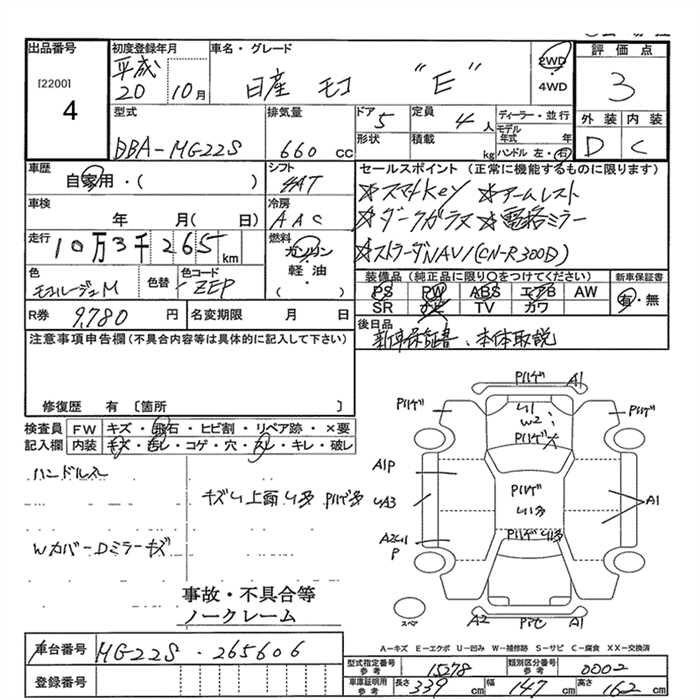 出品番号 初度登録年月 車名・グレード 評価点
[2200]
4
平成
20 10月 日産 モコ "E" 2WD
・
4WD
3
型式 排気量 ドア 5 定員 4人 ディーラー・並行
外装 内装
DBA-MG22S 660cc 形状 積載 kg モデル年式 年
ハンドル 左・右
D C
車歴 自家用・( ) シフト
セールスポイント(正常に機能するものに限ります)
☆スマートKey ☆アームレスト
車検 年 月( 日) 冷房 AAC
☆ダークガラス ☆電格ミラー
走行 10万3千265km 燃料 ガソリン・軽油 ( )
☆ストラーダNAVI(CN-R300D)
色 色替 色コード ZEP
装備品(純正品に限り○をつけてください) 新車保証書
PS PW ABS エアB AW 有・無
SR ナビ TV カワ
R券 9,780円 名変期限 月 日
後日品 新車保証書、本体取説
注意事項申告欄(不具合内容等は具体的に記入して下さい)
修復歴 有 〔箇所 〕
検査員記入欄 FW キズ・飛石・ヒビ割・リペア跡・×要
内装 キズ・汚レ・コゲ・穴・スレ・キレ・破レ
ハンドルスレ
Wカバー Dミラーキズ
事故・不具合等
ノークレーム
A1
W2
A1P
A3
A1
P
A2
A1
スペア
A-キズ E-エクボ U-凹み W-補修跡 S-サビ C-腐食 XX-交換済
車台番号 MG22S-265606
登録番号
型式指定番号参考 15278 類別区分番号参考 0002
車庫証明用参考 長さ 339cm 幅 147cm 高さ 162cm